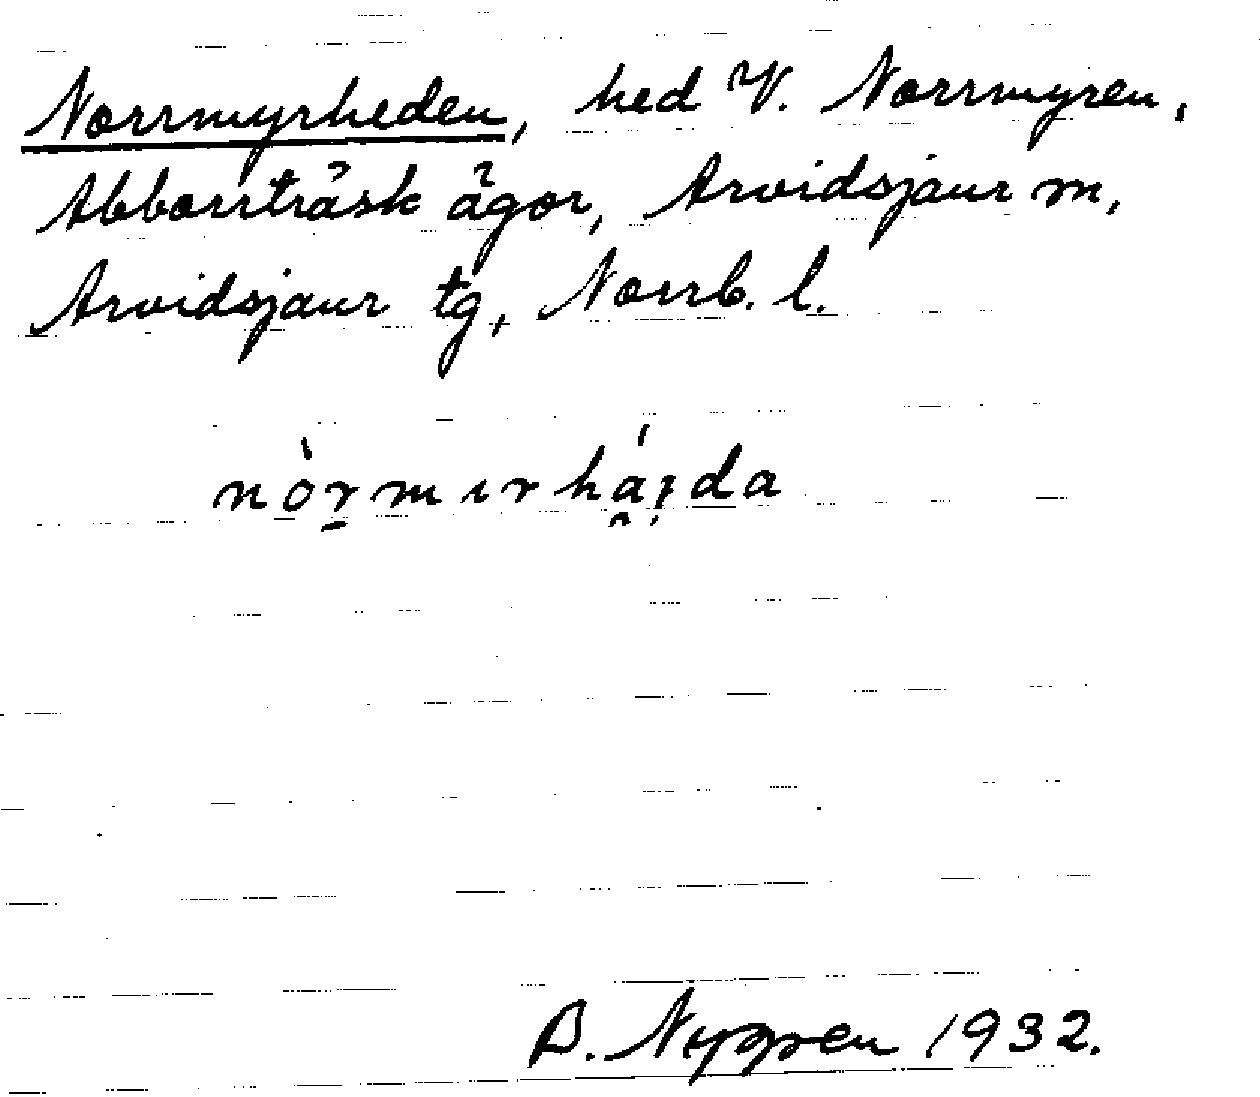 Norrmyrheden, hed V. Norrmyren,
Abborrträsk ägor, Arvidsjaur sn,
Arvidsjaur tg, Norrb. l.
nòr̠mırhái̯da
B. Nygren 1932.